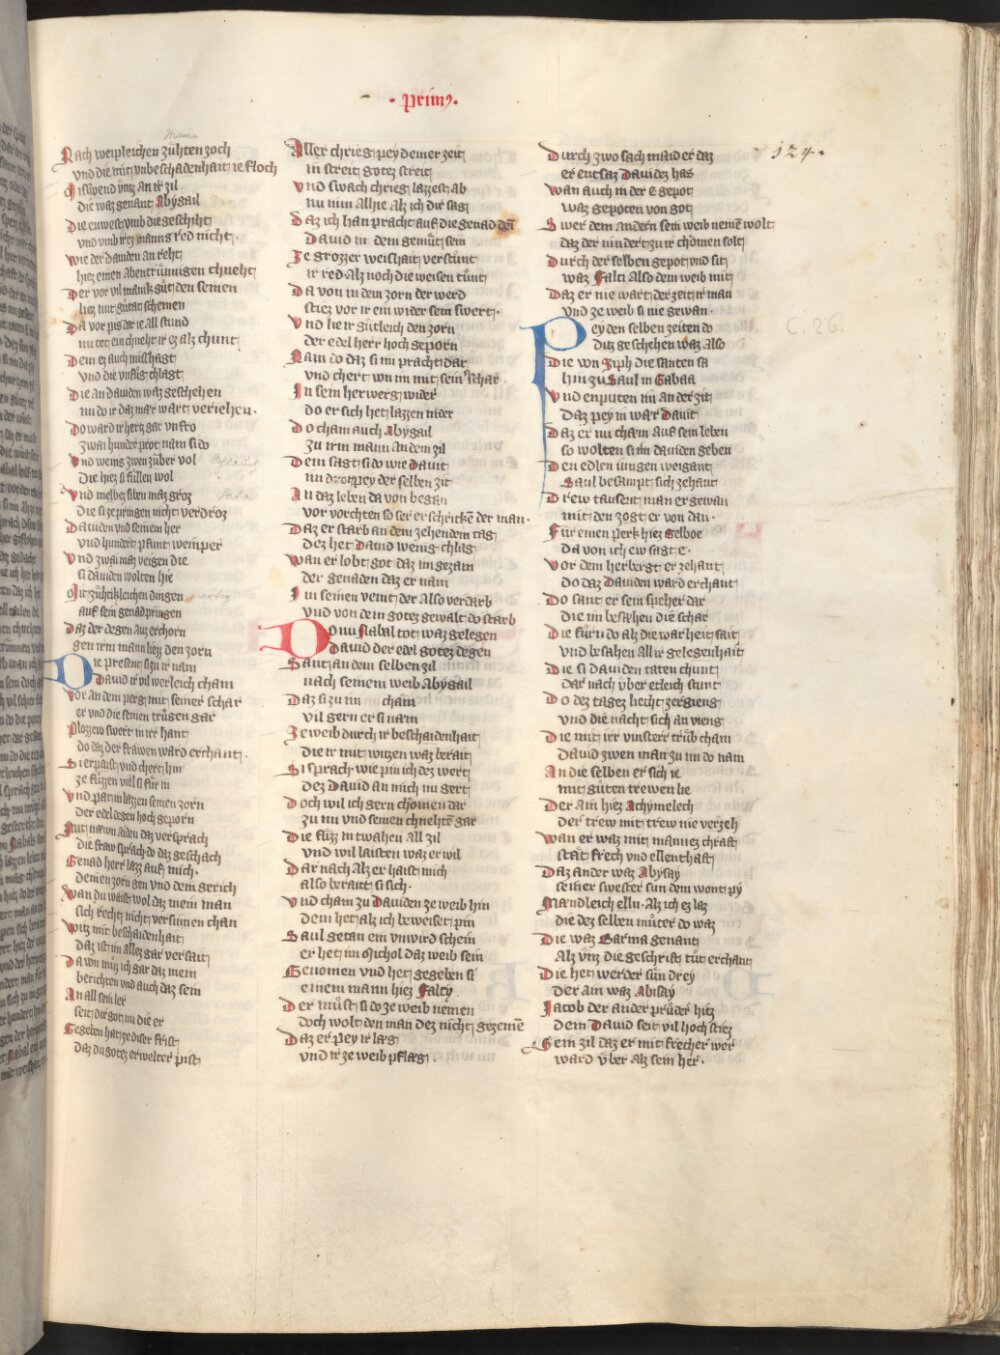 · Primꝰ ·
124 ·
Nach weipleichen zühten zoch
vnd die mit vnbeschadenhait ie floch
die waz genant Abygail
Die enwest vmb die geschiht
vnd vmb irez mannes red nicht ·
wie der dauiden an reht
hiez einen abentrünnigen chneht
Der vor vil manik güt den seinen
liez mit gütat schemen
Da vor pis der ie all stund
nu tet ein chneht ir ez alz chunt
Dem ez auch mishagt
vnd die vnfüg chlagt
Die an dauiden waz geschehen
nu do ir daz mær wart veriehen ·
Do ward ir hertz gar vnfro
zwai hundert prot nam si do
vnd weins zwen züber vol
Die hiez si füllen wol
vnd melbez siben maz groz
Die si ze pringen nicht verdroz
Dauiden vnd seinem her
vnd hundert pfunt weinper
vnd zwai maz veigen die
si dauiden wolten hie
Mit zühtikleichen dingen
auf sein genad pringen
Daz der degen auz erchorn
gen irm mann liez den zorn
Die present si zu ir nam
Dauid ir vil werleich cham
Vor an dem perg mit seiner schar
er vnd die seinen trügen gar
Plozzew swert in irr hant
do daz der frawen ward erchant ·
Si erpaist vnd chert hin
ze füzzen viel si für in
vnd pat in lazzen seinen zorn
Der edel degen hoch geporn
die fraw sprach do daz geschach
Genad herr lazz auf mich ·
deinen zorn gen vnd dein gerich
wan du waist wol daz mein man
sich rechtz nicht versinnen chan
witz mit beschaidenhait
daz ist im allez gar versait
Da von müz ich gar daz mein
berichten vnd auch daz sein
An all sein ler
seit dir got nu die er
Gegeben hat ze diser frist
daz du gotez erwelter pist
Aller chrieg pey deiner zeit
in streit gotez streit
vnd swach chrieg lazzest ab
nu nim allie alz ich dir sag
Daz ich han pracht auf die genad dein
Dauid in dem gemüt sein
Ze grozzer weishait verstunt
ir red alz noch die weisen tünt
Da von in dem zorn der werd
stiez vor ir ein wider sein swert ·
vnd lie ir gütleich den zorn
der edel herr hoch geporn
Nam do daz si im pracht dar
vnd chert von im mit seiner schar
In sein herwerg wider
do er sich het lazzen nider
Do cham auch Abygail
zu irm mann an dem zil
Dem sagt si do wie Dauit
im drot pey der selben zit
An daz leben da von began
vor vorchten so ser erschricken der man ·
Daz er starb an dem zehendem tag
Dez het Dauid wenig chlag
wan er lobt got daz im gezam
der genaden daz er nam
In seinen veint der also verdarb
vnd von dem gotez gewalt do starb
Do nu Nabal tot waz gelegen
Dauid der edel gotez degen
Sant an dem selben zil
nach seinem weib Abygail
Daz si zu im cham
vil gern er si nam
Ze weib durch ir beschaidenhait
die ir mit witzen waz berait
Si sprach wie pin ich dez wert
dez Dauid an mich nu gert
Doch wil ich gern chömen dar
zu im vnd seinen chnehten gar
Die füz in twahen all zil
vnd wil laisten waz er wil
Dar nach alz er haist mich
also berait si sich ·
vnd cham zu Dauiden ze weib hin
dem het alz ich beweiset pin
Saul getan ein vnwird schein
er het im Mychol daz weib sein
Genomen vnd het gegeben si
einem mann hiez Falty
Der müst si do ze weib nemen
doch wolt den man dez nicht gezemen
Daz er pey ir læg
vnd ir ze weib pflæg ·
Durch zwo sach maid er daz
er entsaz Dauidez has
wan auch in der e gepot
waz gepoten von got
Swer dem andern sein weib nemen wolt
daz der nindert zu ir chömen solt
Durch der selben gepot vnd sit
waz Falti also dem weib mit
Daz er nie wart der zeit ir man
vnd ze weib si nie gewan ·
C. 26.
Pey den selben zeiten do
ditz geschehen waz also
Die von Ziph die santen sa
hin zu Saul in Gabaa
vnd enputen im an der zit
daz pey in wær Dauit
Daz er nu cham auf sein leben
so wolten si im dauiden geben
Den edlen iungen weigant
Saul besampt sich zehant
Drew tausent man er gewan
mit den zogt er von dan ·
Für einen perk hiez Gelboe
da von ich ew sagt e ·
vor dem herbergt er zehant
do daz Dauiden ward erchant
Do sant er sein speher dar
die im besahen die schar
Die fürn do alz die warheit sait
vnd besahen all ir gelegenhait
Die si Dauiden taten chunt
dar nach über etleich stunt
Do dez tagez liecht zergieng
vnd die nacht sich an vieng
Die mit irr vinsterr trüb cham
Dauid zwen man zu im do nam
An die selben er sich ie
mit güten trewen lie
Der ain hiez Achymelech
der trew mit trew nie verzeh
wan er waz mit mannez chraft
stæt frech vnd ellenthaft
Daz ander waz Abysay
seiner swester sun dem wont py
Mændleich elln · alz ich ez laz
die dez selben müter do waz
Die waz Sarma genant
alz vnz die geschrift tüt erchant
Die het werder sün drey
der ain waz Abisay
Jacob der ander prüder hiez
dem Dauid seit vil hoch stiez
Sein zil daz er mit frecher wer
ward über alz sein her ·